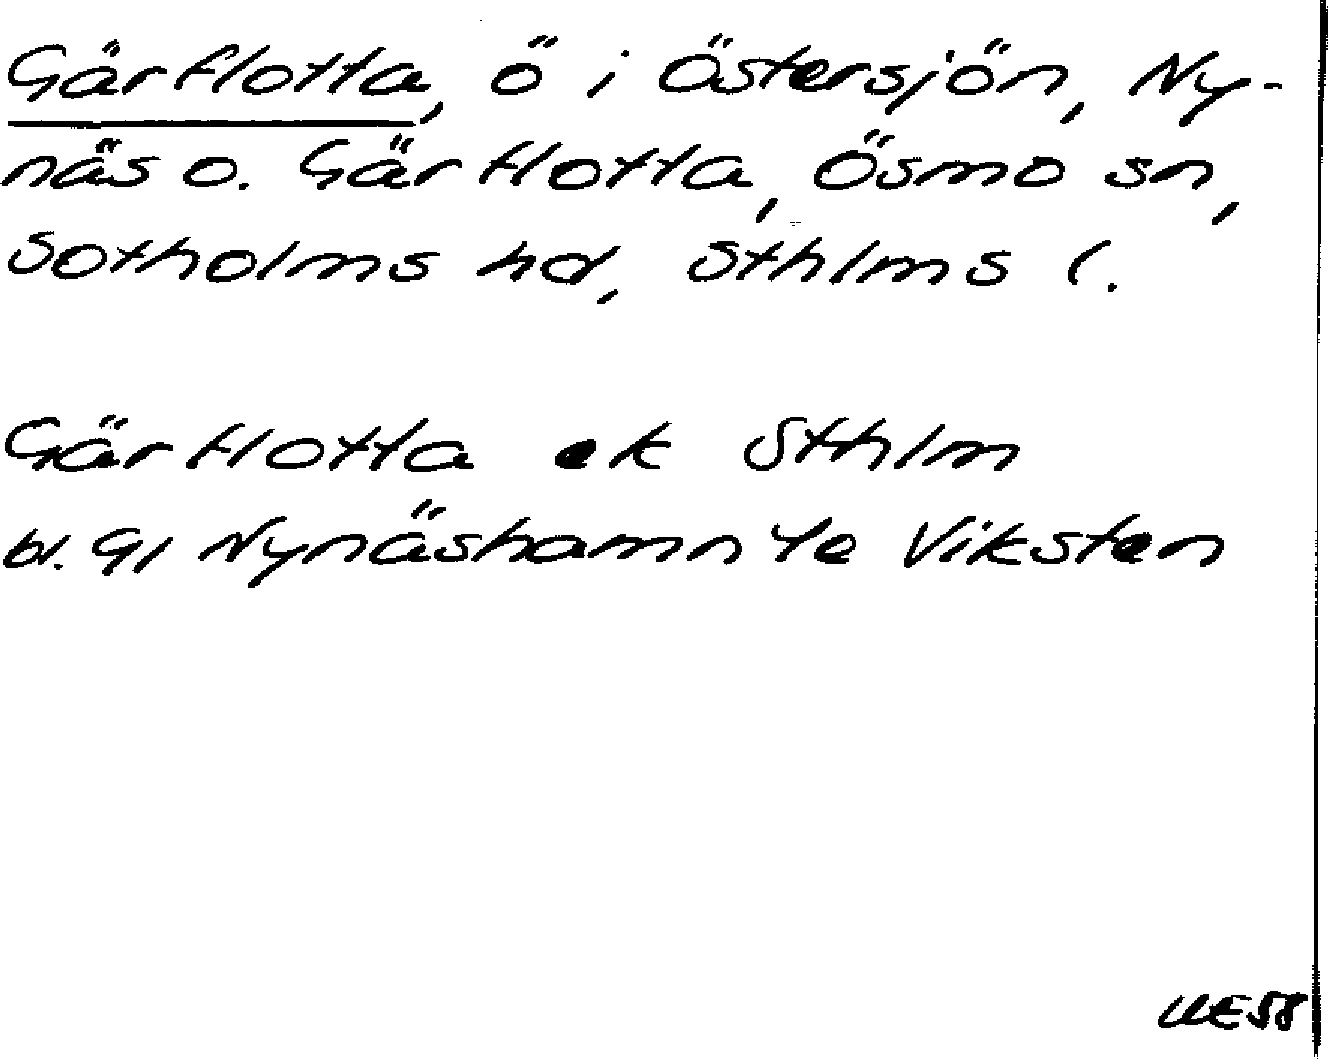 Gärflotta, ö i Östersjön, Ny-
näs o. Gärflotta, Ösmo sn,
Sotholms hd, Sthlms l.
Gärflotta ek Sthlm
bl. 91 Nynäshamn Ye Viksten
UE58